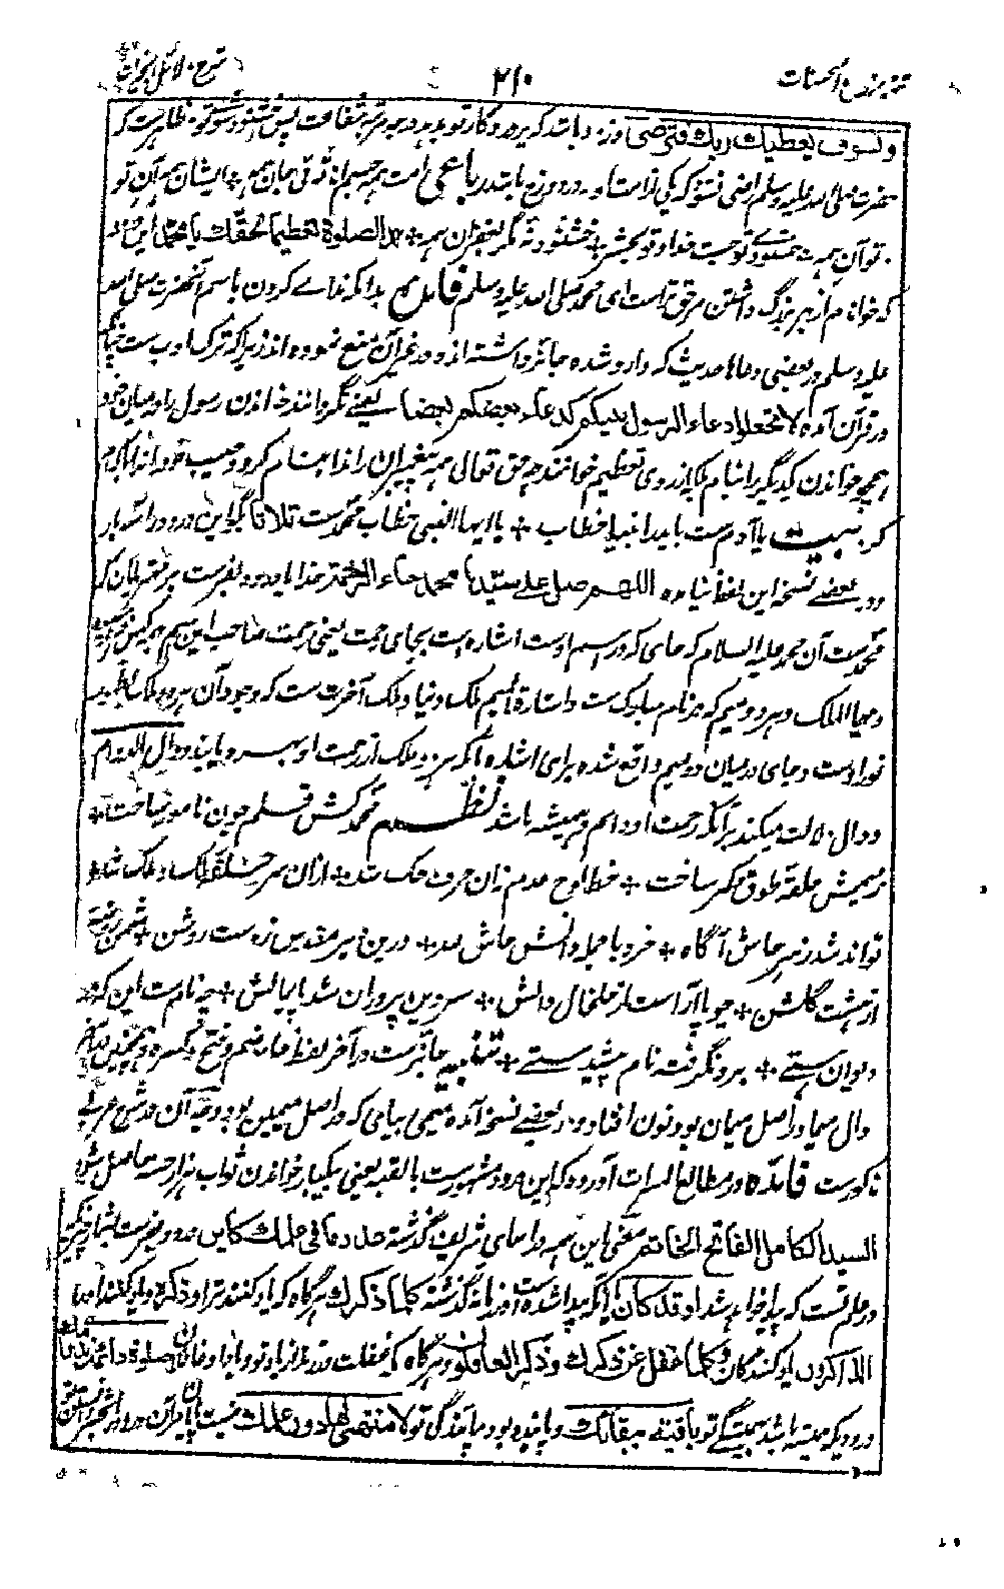 شرح دلائل الخیرات ۲۱۰ مزرع الحسنات
ولسوف یعطیك ربك فترضی و زود باشد که پروردگار تو بدهد مرتبه شفاعت پس خشنود شوی تو ظاهرست که
حضرت صلی الله علیه وسلم راضی نشود که یکی از امت او در دوزخ باشد رباعی امت همه جسم اند و تویی جان همه ایشان همه آن تو
تو آن همه خشنودی تو جست خدا و تو بحشر خشنود نه مگر بغفران همه هذه الصلوة تعظیما لحقك یا محمد این درود
که خوانده ام از بهر بزرگ داشتن مرحق تراست ای محمد صلی الله علیه وسلم فایده بدانکه ندای کردن باسم آنحضرت صلی الله
علیه وسلم در بعضی دعاها حدیث که وارد شده جائز داشته اند و در غیر آن منع نموده اند زیراکه ترک ادب ست چنانچه
در قرآن آمده لا تجعلوا دعاء الرسول بینکم کدعاء بعضکم بعضا یعنی مگردانید خواندن رسول را در میان خود
همچو خواندن یکدیگر را بنام بلکه از روی تعظیم خوانند چه حق تعالی همه پیغمبران را ندا بنام کرد و حبیب خود را
که بیت یا آدم ست با پدر انبیا خطاب + یا ایها النبی خطاب محمدست ثلاثا بگو این درود را سه بار
و در بعضی نسخه این لفظ نیامده اللهم صل علی سیدنا محمد حاء الرحمة خدایا درود بفرست بر مهتر مایان که
محمدست آن محمد علیه السلام که حای که در اسم اوست اشاره است بجای رحمت یعنی رحمت صاحب این اسم
و میما الملك و هر دو میم که در نام مبارک ست و اشارة بمیم ملک دنیا و ملک آخرت ست که وجود آن هر دو ملک
نور اوست و حای در میان دو میم واقع شده برای اشاره آنکه هر دو ملک از رحمت او بهره یابند و دال الدوام
و دال دلالت میکند بر آنکه رحمت او دایم و همیشه باشد نظم محمد کش قلم چون نامور ساخت +
ز میمش حلقه طوق کمر ساخت + خط لوح عدم زان حرف حک شد + ازان سر حلقه ملک و ملک شد
تواند شد ز سر حاش آگاه + خرد با جمله دانش حاش لله + درین دیر مقدس زوست روشن +
از هشت گلشن + چو پا آراست از خلخال دالش + سر دین پروران شد پایمالش + چه نام ست این که در
دیوان هستی + برو نگرفته نام پیشدستی + تنبیه جائزست در آخر لفظ حا رفع و فتح و کسره و همچنین
دال میما در اصل میمان بود نون افتاد و در بعضی نسخه آمده میمی بیای که در اصل میمین بود وجه آن در شرح عربی
مذکورست فائده در مطالع المسرات آورده که این درود مشهورست بالفیه یعنی یکبار خواندن ثواب هزار حسنه حاصل شود
السید الکامل الفاتح الخاتم معنی این همه در اسمای شریف گذشته عدد ما فی علمك کاین درود بفرست بشمار چیزیکه
در علم تست که پیدا خواهد شد او قد کان یا آنکه پیدا شده است در زمانه گذشته کلما ذکرك هرگاه که یاد کنند ترا و ذکره و یاد کنند او را
الذاکرون یاد کنندگان و کلما غفل عن ذکرك و ذکره الغافلون و هرگاه که غفلت ورزند از یاد تو و یاد او غافلان صلوة دائمة
درودیکه همیشه باشد بهمیشگی تو باقیة ببقائك و پاینده بود بپایندگی تو لا منتهی لها دون علمك نیست پایان مر آن درود را